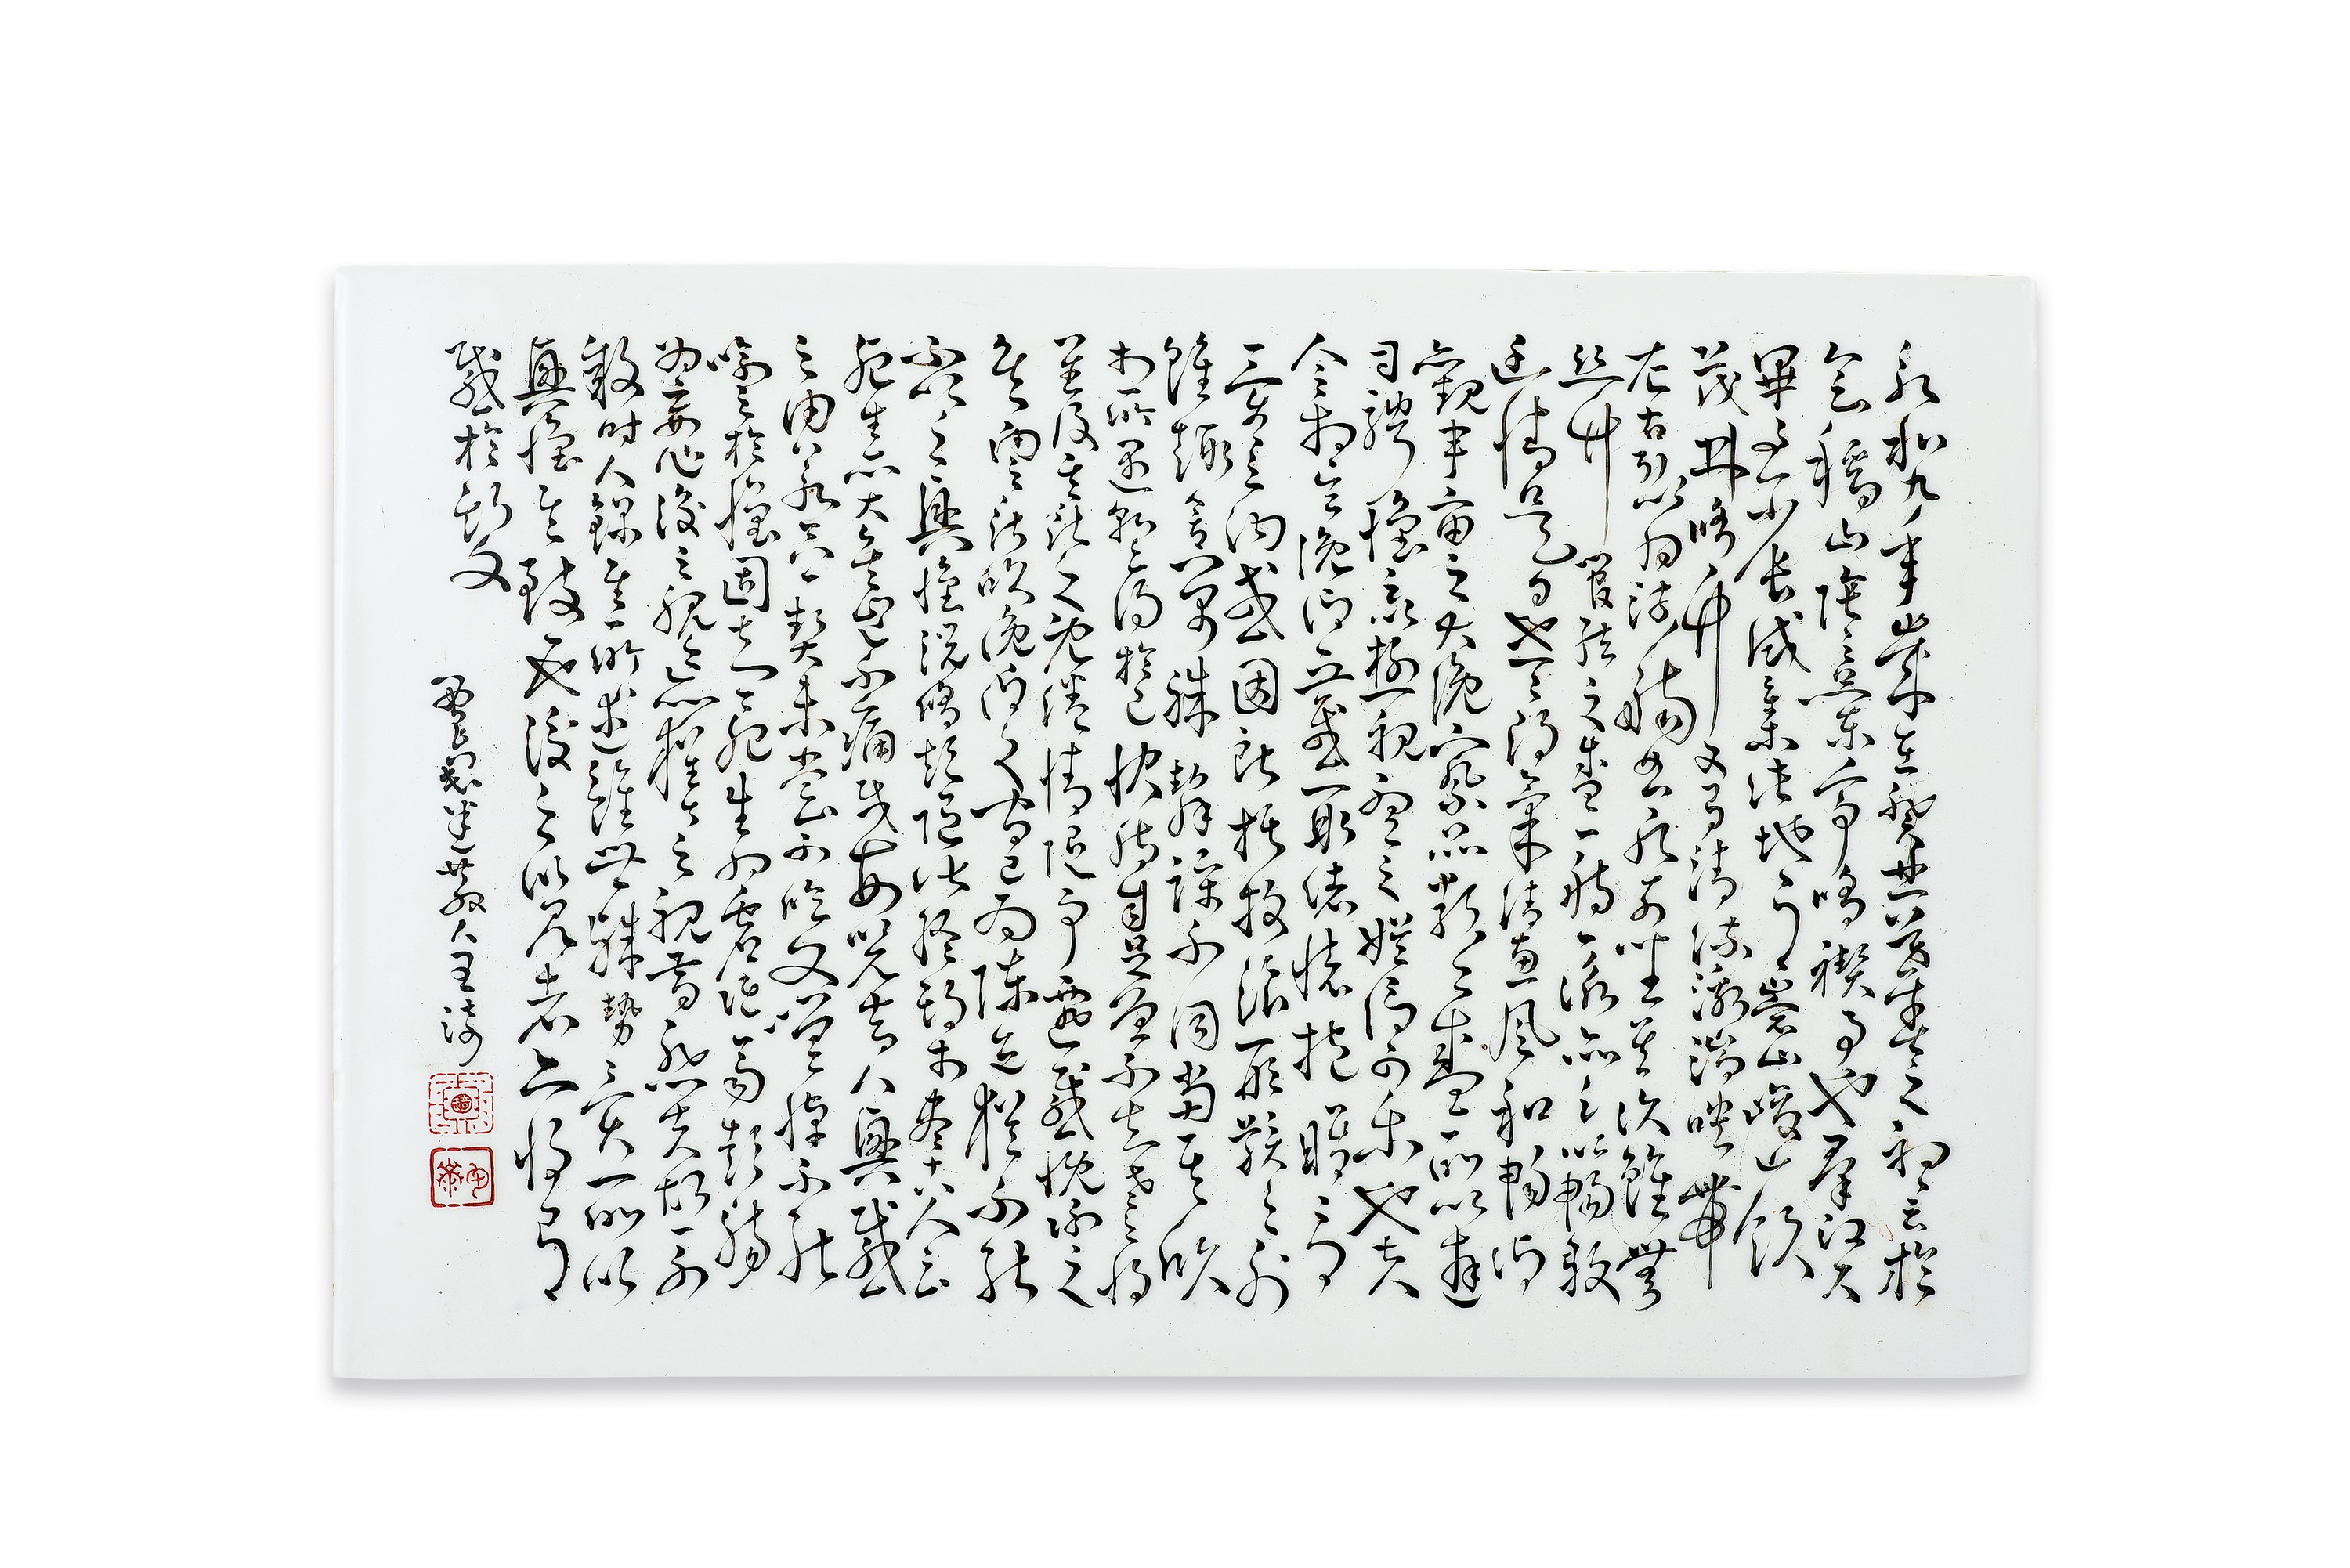 永和九年歲在癸丑暮春之初會於
會稽山陰之蘭亭脩禊事也羣賢
畢至少長咸集此地有崇山峻領
茂林脩竹又有清流激湍映帶
左右引以為流觴曲水列坐其次雖無
絲竹管弦之盛一觴一詠亦足以暢敘
幽情是日也天朗氣清惠風和暢仰
觀宇宙之大俛察品類之盛所以遊
目騁懷足以極視聽之娛信可樂也夫
人之相與俛仰一世或取諸懷抱晤言
一室之內或因託放浪形骸之外
雖趣舍萬殊靜躁不同當其欣
於所遇暫得於己快然自足曾不知老之將
至及其所之既惓情隨事遷感慨係之
矣向之所欣俛仰之間已為陳迹猶不能
不以之興懷況脩短隨化終期於盡古人云
死生亦大矣豈不痛哉每覽昔人興感
之由若合一契未嘗不臨文嗟悼不能
喻之於懷固知一死生為虛誕齊彭殤
為妄作後之視今亦猶今之視昔悲夫故列
敘時人錄其所述雖世殊勢異所以
興懷其致一也後之覽者亦將有
感於斯文
散人王琦